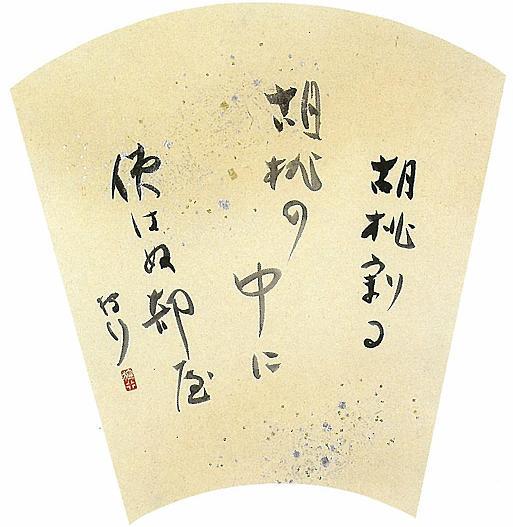 胡桃割る
胡桃の中に
使はぬ部屋
狩行